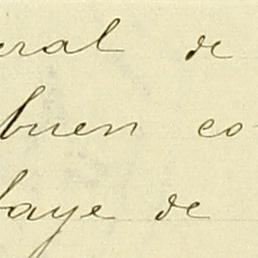 eral de
buen co
baye de